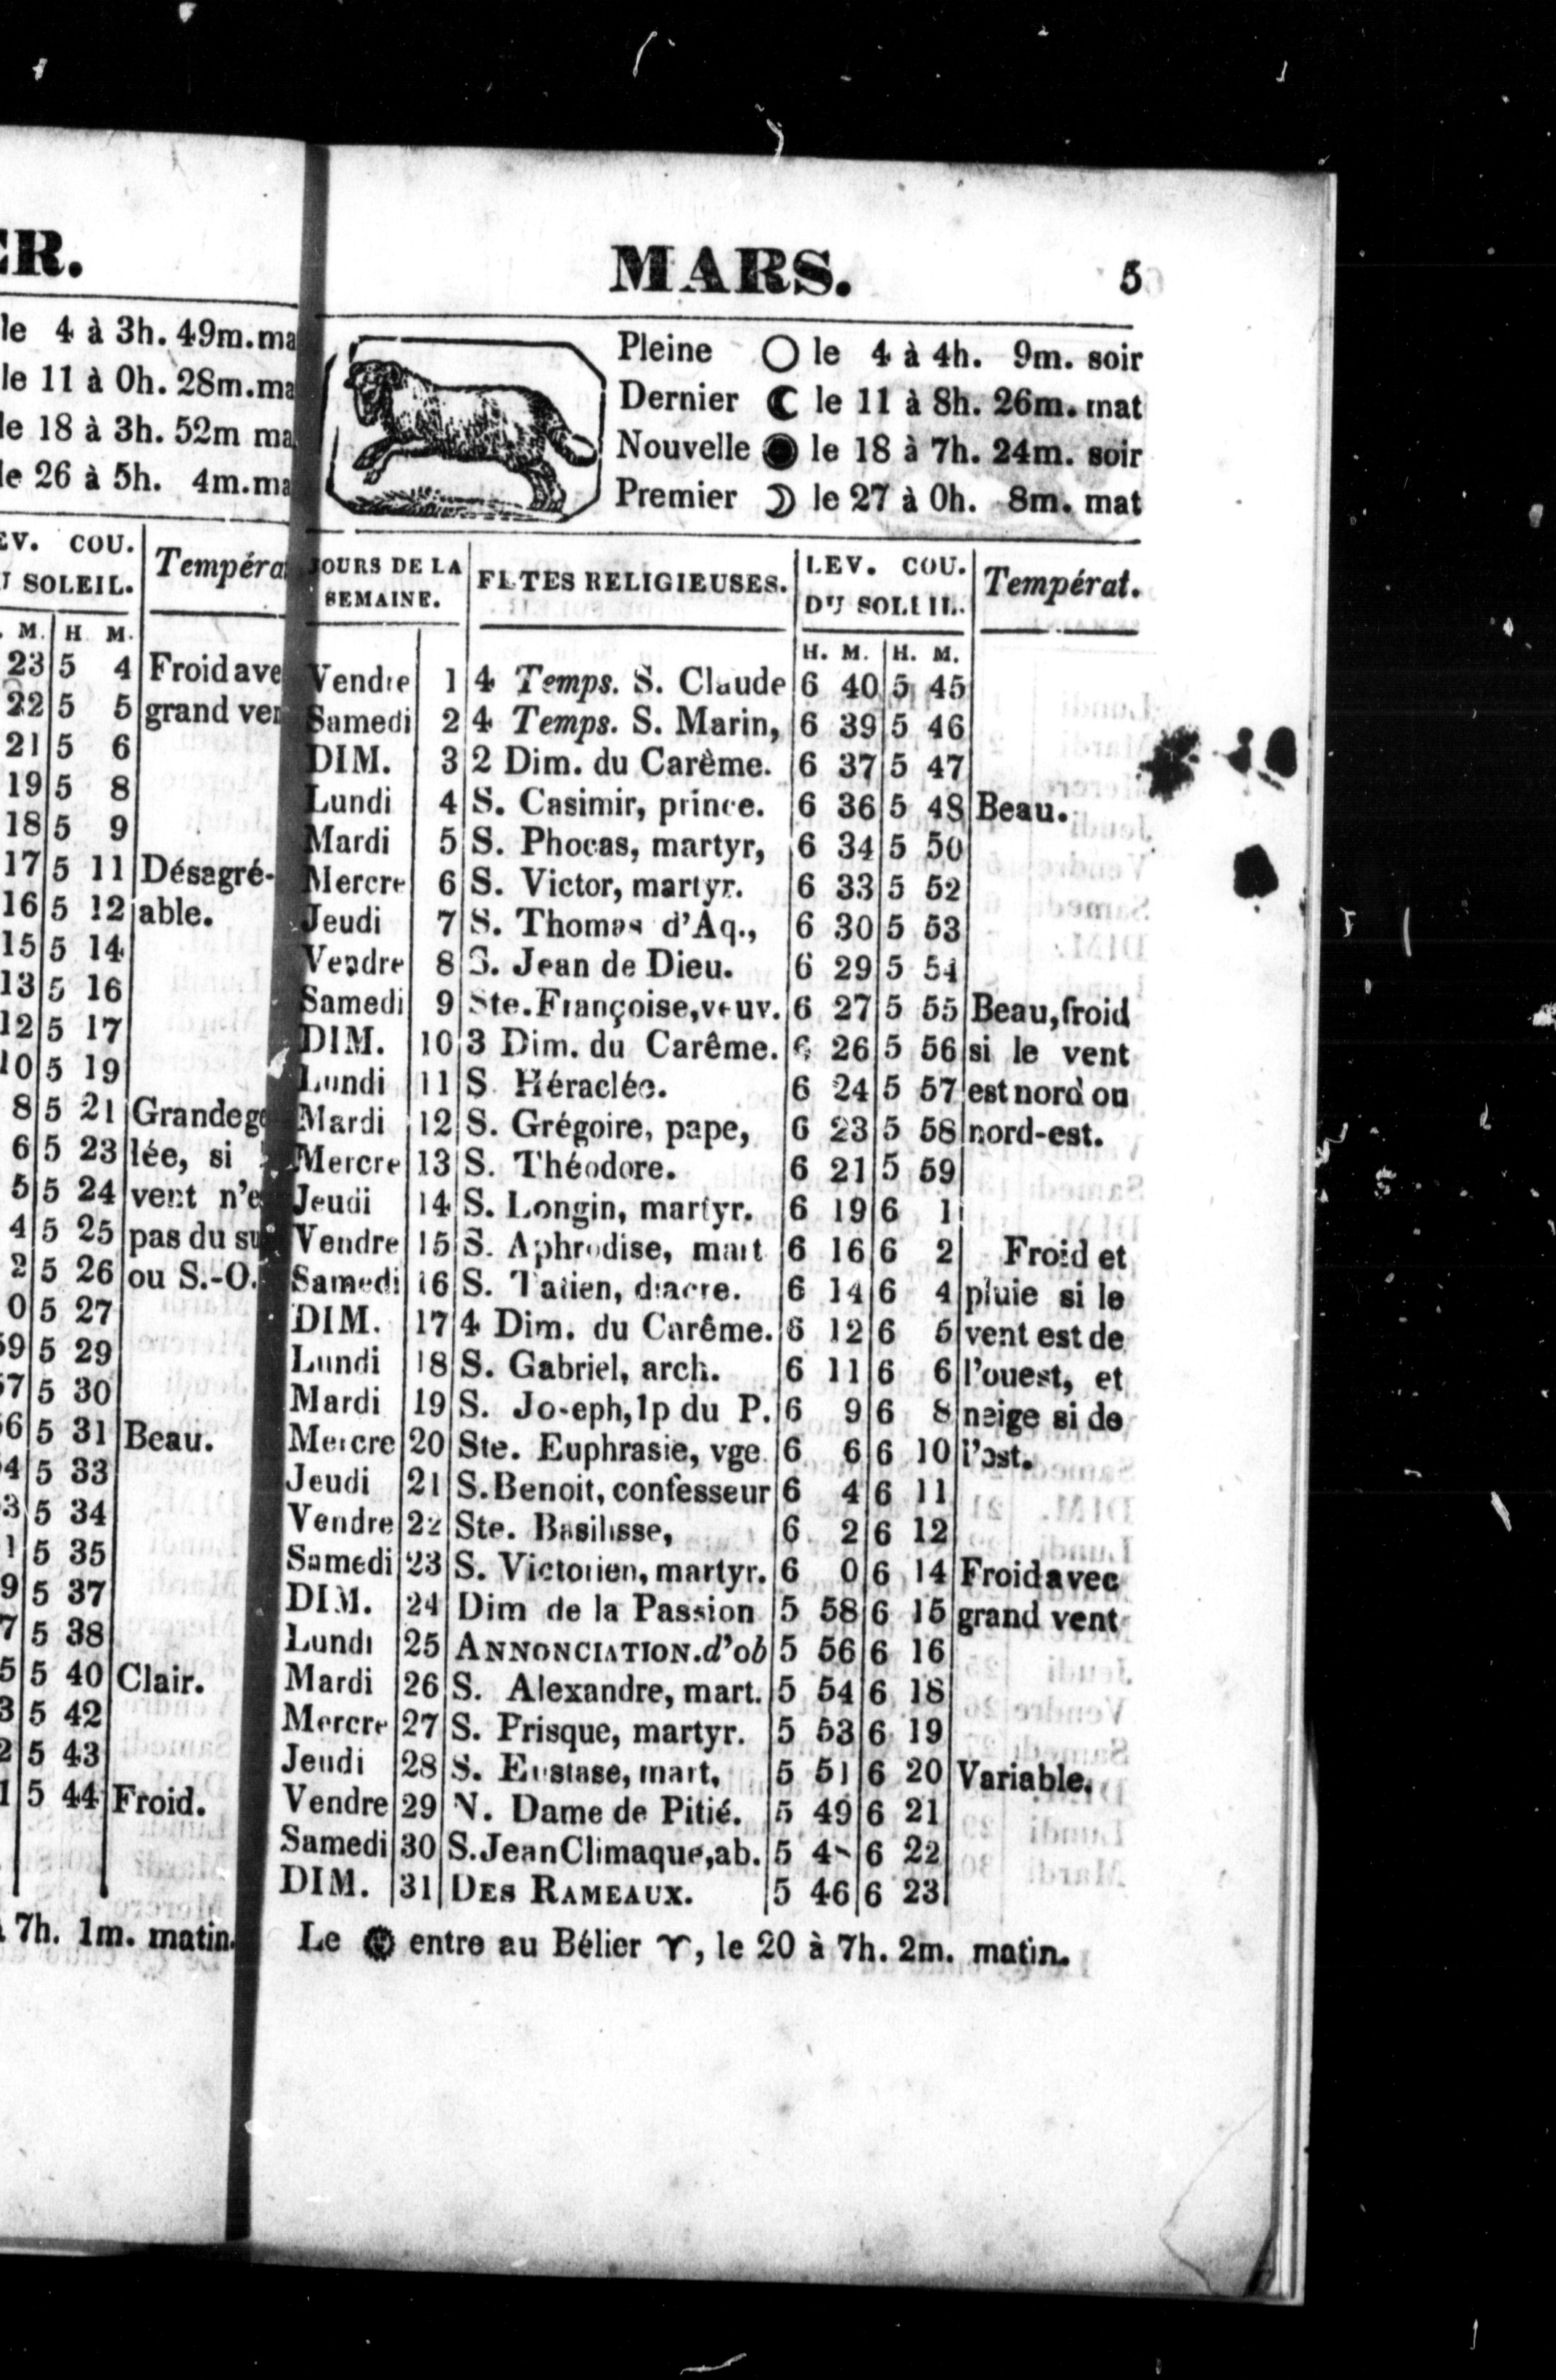 ER.
le 4 à 3h. 49m.ma
le 11 à 0h. 28m.ma
le 18 à 3h. 52m ma
le 26 à 5h. 4m.ma
EV. COU. Tempéra
U SOLEIL.
. M. H M.
23 5 4 Froid ave
22 5 5 grand ven
21 5 6
19 5 8
18 5 9
17 5 11 Désagré-
16 5 12 able.
15 5 14
13 5 16
12 5 17
10 5 19
8 5 21 Grande ge
6 5 23 lée, si
5 5 24 vent n'e
4 5 25 pas du su
2 5 26 ou S.-O.
0 5 27
59 5 29
57 5 30
56 5 31 Beau.
54 5 33
3 5 34
1 5 35
9 5 37
7 5 38
5 5 40 Clair.
3 5 42
2 5 43
1 5 44 Froid.
à 7h. 1m. matin.
MARS. 5
Pleine ○ le 4 à 4h. 9m. soir
Dernier ☾ le 11 à 8h. 26m. mat
Nouvelle ● le 18 à 7h. 24m. soir
Premier ☽ le 27 à 0h. 8m. mat
JOURS DE LA SEMAINE. FETES RELIGIEUSES. LEV. COU. DU SOLEIL. Températ.
H. M. H. M.
Vendre 1 4 Temps. S. Claude 6 40 5 45
Samedi 2 4 Temps. S. Marin, 6 39 5 46
DIM. 3 2 Dim. du Carème. 6 37 5 47
Lundi 4 S. Casimir, prince. 6 36 5 48 Beau.
Mardi 5 S. Phocas, martyr, 6 34 5 50
Mercre 6 S. Victor, martyr. 6 33 5 52
Jeudi 7 S. Thomas d'Aq., 6 30 5 53
Vendre 8 S. Jean de Dieu. 6 29 5 54
Samedi 9 Ste. Françoise, veuv. 6 27 5 55 Beau, froid
DIM. 10 3 Dim. du Carême. 6 26 5 56 si le vent
Lundi 11 S Héraclée. 6 24 5 57 est nord ou
Mardi 12 S. Grégoire, pape, 6 23 5 58 nord-est.
Mercre 13 S. Théodore. 6 21 5 59
Jeudi 14 S. Longin, martyr. 6 19 6 1
Vendre 15 S. Aphrodise, mart 6 16 6 2 Froid et
Samedi 16 S. Tatien, diacre. 6 14 6 4 pluie si le
DIM. 17 4 Dim. du Carême. 6 12 6 5 vent est de
Lundi 18 S. Gabriel, arch. 6 11 6 6 l'ouest, et
Mardi 19 S. Joseph, 1p du P. 6 9 6 8 neige si de
Mercre 20 Ste. Euphrasie, vge. 6 6 6 10 l'est.
Jeudi 21 S. Benoit, confesseur 6 4 6 11
Vendre 22 Ste. Basilisse, 6 2 6 12
Samedi 23 S. Victorien, martyr. 6 0 6 14 Froid avec
DIM. 24 Dim de la Passion 5 58 6 15 grand vent
Lundi 25 ANNONCIATION. d'ob 5 56 6 16
Mardi 26 S. Alexandre, mart. 5 54 6 18
Mercre 27 S. Prisque, martyr. 5 53 6 19
Jeudi 28 S. Eustase, mart, 5 51 6 20 Variable.
Vendre 29 N. Dame de Pitié. 5 49 6 21
Samedi 30 S. Jean Climaque, ab. 5 6 22
DIM. 31 DES RAMEAUX. 5 46 6 23
Le entre au Bélier ♈, le 20 à 7h. 2m. matin.